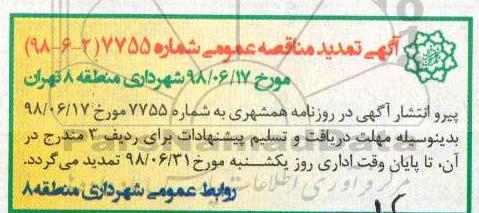 آگهی تمدید مناقصه عمومی شماره ۷۷۵۵ (۲-۶-۹۸)
مورخ ۹۸/۰۶/۱۷ شهرداری منطقه ۸ تهران
پیرو انتشار آگهی در روزنامه همشهری به شماره ۷۷۵۵ مورخ ۹۸/۰۶/۱۷
بدینوسیله مهلت دریافت و تسلیم پیشنهادات برای ردیف ۳ مندرج در
آن، تا پایان وقت اداری روز یکشنبه مورخ ۹۸/۰۶/۳۱ تمدید می گردد.
روابط عمومی شهرداری منطقه ۸